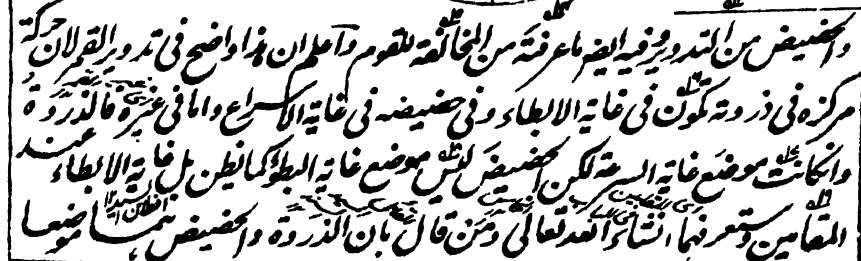 والحضيض من التدوير وفيه ايضا ما عرفته من المخالفة للقوم واعلم ان هذا واضح فى تدوير القمر لان حركة
مركزه فى ذروته تكون فى غاية الابطاء وفى حضيضه فى غاية الاسراع واما فى غيره فالذروة
وانكانت موضع غاية السرعة لكن الحضيض ليس موضع غاية البطؤ كما نظن بل غاية الابطاء عند
المقامين وستعرفهما انشاء الله تعالى ومن قال بان الذروة والحضيض هما موضعا